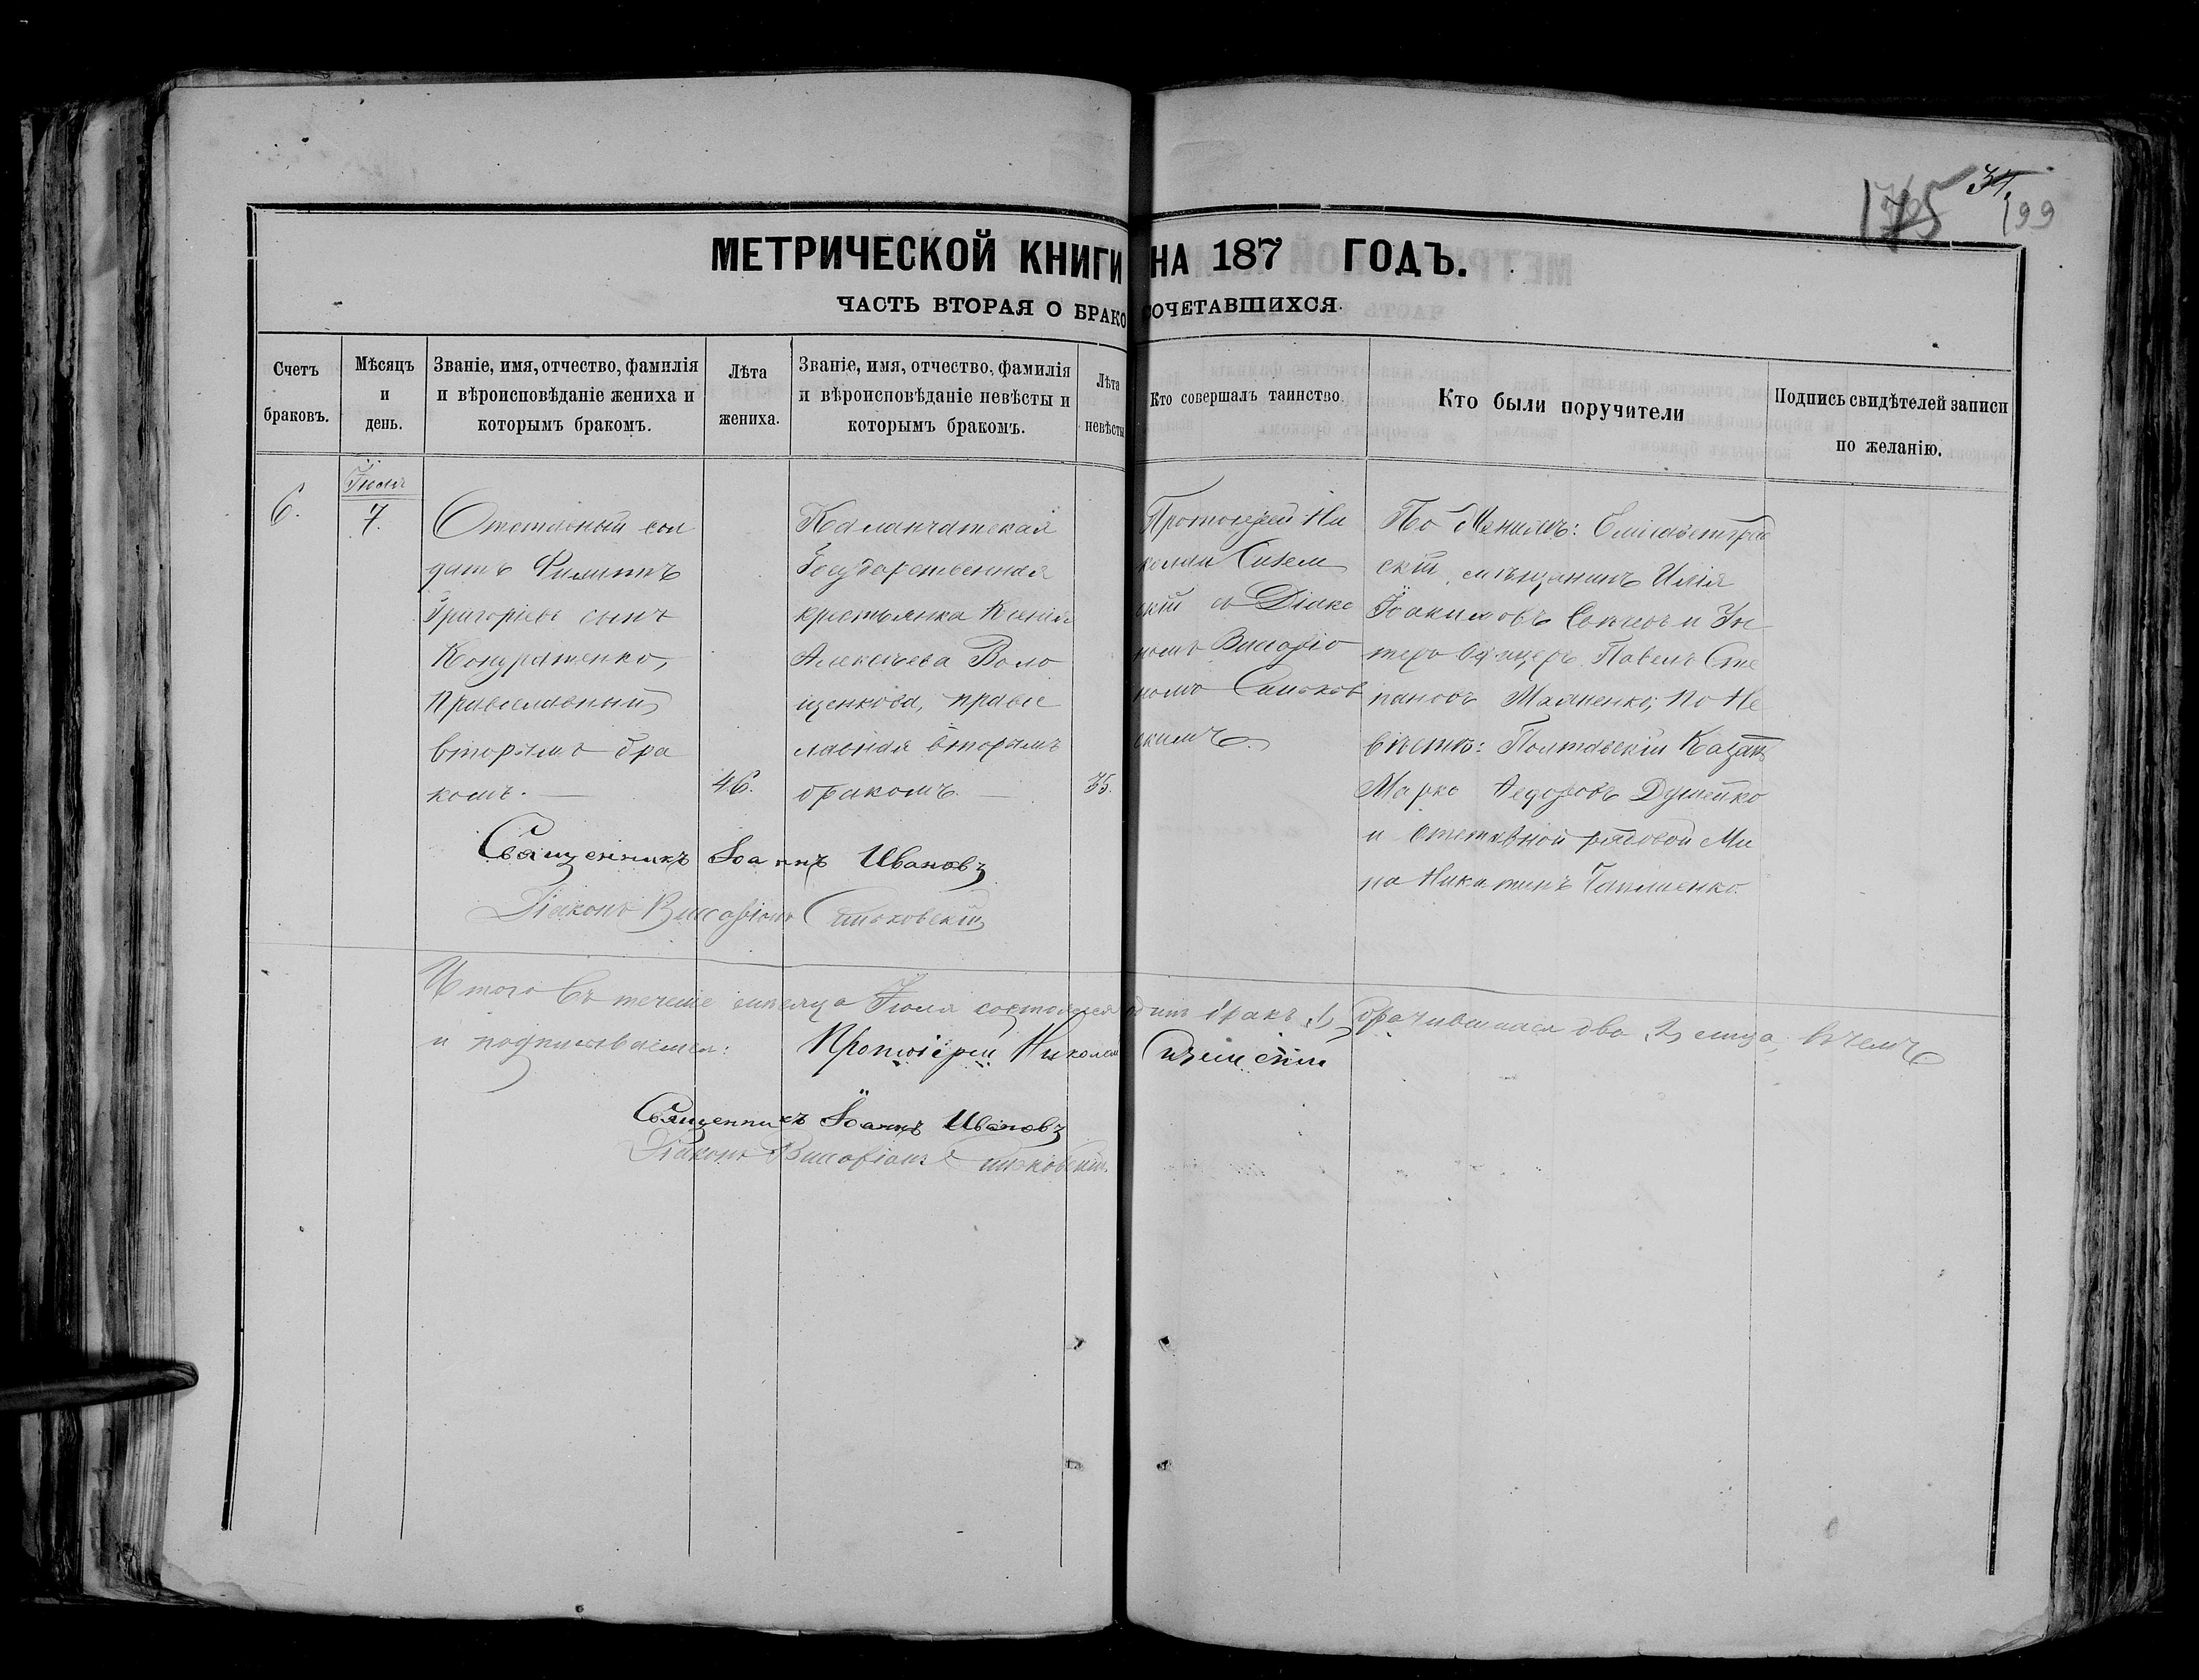 175 34 199
МЕТРИЧЕСКОЙ КНИГИ НА 187 ГОДЪ.
ЧАСТЬ ВТОРАЯ О БРАКОСОЧЕТАВШИХСЯ.
Счетъ
браковъ.
Мѣсяцъ
и
день.
Званіе, имя, отчество, фамилія
и вѣроисповѣданіе жениха и
которымъ бракомъ.
Лѣта
жениха.
Званіе, имя, отчество, фамилія
и вѣроисповѣданіе невѣсты и
которымъ бракомъ.
Лѣта
невѣсты
Кто совершалъ таинство.
Кто были поручители
Подпись свидѣтелей записи
по желанію.
6.
Іюля
7.
Отставный сол
датъ Филиппъ
Григоріевъ сынъ
Кондратенко,
православный
вторымъ бра
комъ.
46.
Каланчатская
Государственная
крестьянка Ксенія
Алексѣева Воло
щенкова, правос
лавная вторымъ
бракомъ.
35.
Протоіерей Ни
колай
скій съ Діако
номъ Виссаріо
номъ Синьков
скимъ.
По Женихѣ: Елисаветград
скій мѣщанинъ Илія
Іоакимовъ и Ун
теръ Офицеръ Павелъ Сте
пановъ по Не
вѣстѣ: Полтавскій Казакъ
Марко Федоровъ
и отставной рядовой Ми
на Никитинъ
Священникъ Іоаннъ Ивановъ
Діаконъ Виссаріонъ Синьковскій
Итого въ теченіе мѣсяца Іюля состоялся одинъ бракъ, 1, брачившихся два, 2, лица, въ чемъ
и подписываемся: Протоіерей Николай
Священникъ Іоаннъ Ивановъ
Діаконъ Виссаріонъ Синьковскій